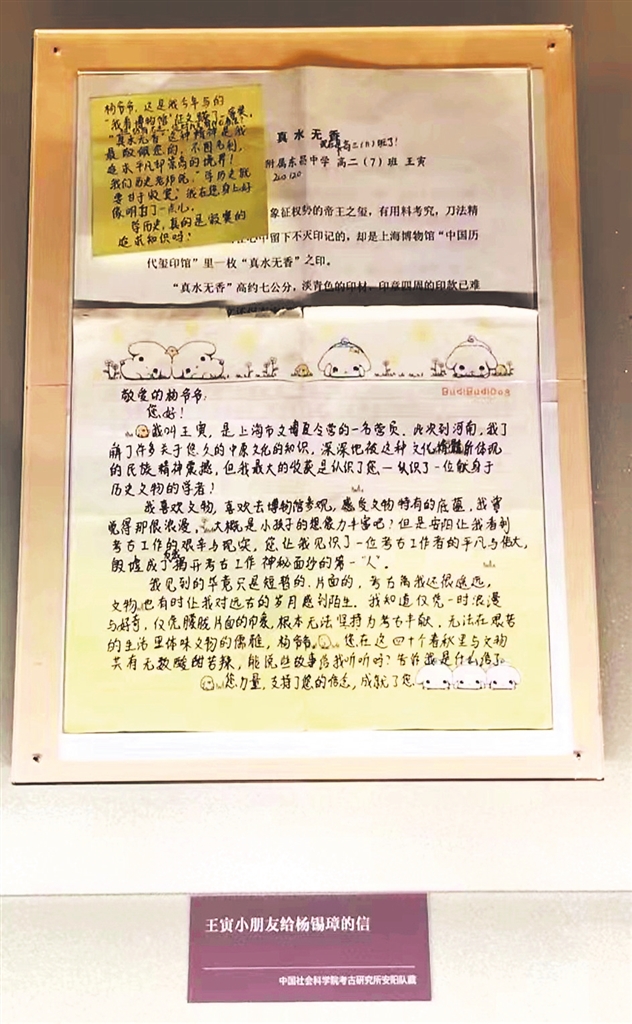 杨爷爷,这是我今年写的
"我看博物馆"征文
"真水无香"这种精神是我
最敬佩您的,不图名利,
追求平凡却崇高的境界!
我们历史老师说:"学历史就
要甘于寂寞",我在您身上好
像明白了一点儿。
学历史,真的是寂寞的
追求知识吗?
真水无香
现在是高三(11)班了!
附属东昌中学 高二(7)班 王寅
200120
象征权势的帝王之玺,有用料考究,刀法精
心中留下不灭印记的,却是上海博物馆"中国历
代玺印馆"里一枚"真水无香"之印。
"真水无香"高约七公分,淡青色的印材,印章四周的印款已难
BudiBudiDog
敬爱的杨爷爷:
您好!
我叫王寅,是上海市文博夏令营的一名营员。此次到河南,我了
解了许多关于悠久的中原文化的知识,深深地被这种文化所体现
的民族精神震撼,但我最大的收获是认识了您——认识了一位献身于
历史文物的学者!
我喜欢文物,喜欢去博物馆参观,感受文物特有的底蕴,我曾
觉得那很浪漫,大概是小孩子的想像力丰富吧?但是安阳让我看到
考古工作的艰辛与现实,您让我见识了一位考古工作者的平凡与伟大,
殷墟成了我揭开考古工作神秘面纱的第一"人"。
我见到的毕竟只是短暂的、片面的,考古离我还很遥远,
文物也有时让我对远古的岁月感到陌生。我知道仅凭一时浪漫
与好奇,仅凭朦胧片面的印象,根本无法坚持为考古奉献,无法在艰苦
的生活里体味文物的儒雅,杨爷爷,您在这四十个春秋里与文物
共有无数酸甜苦辣,能说些故事给我听听吗?告诉我是什么给了
您力量,支持了您的信念,成就了您
王寅小朋友给杨锡璋的信
中国社会科学院考古研究所安阳队藏